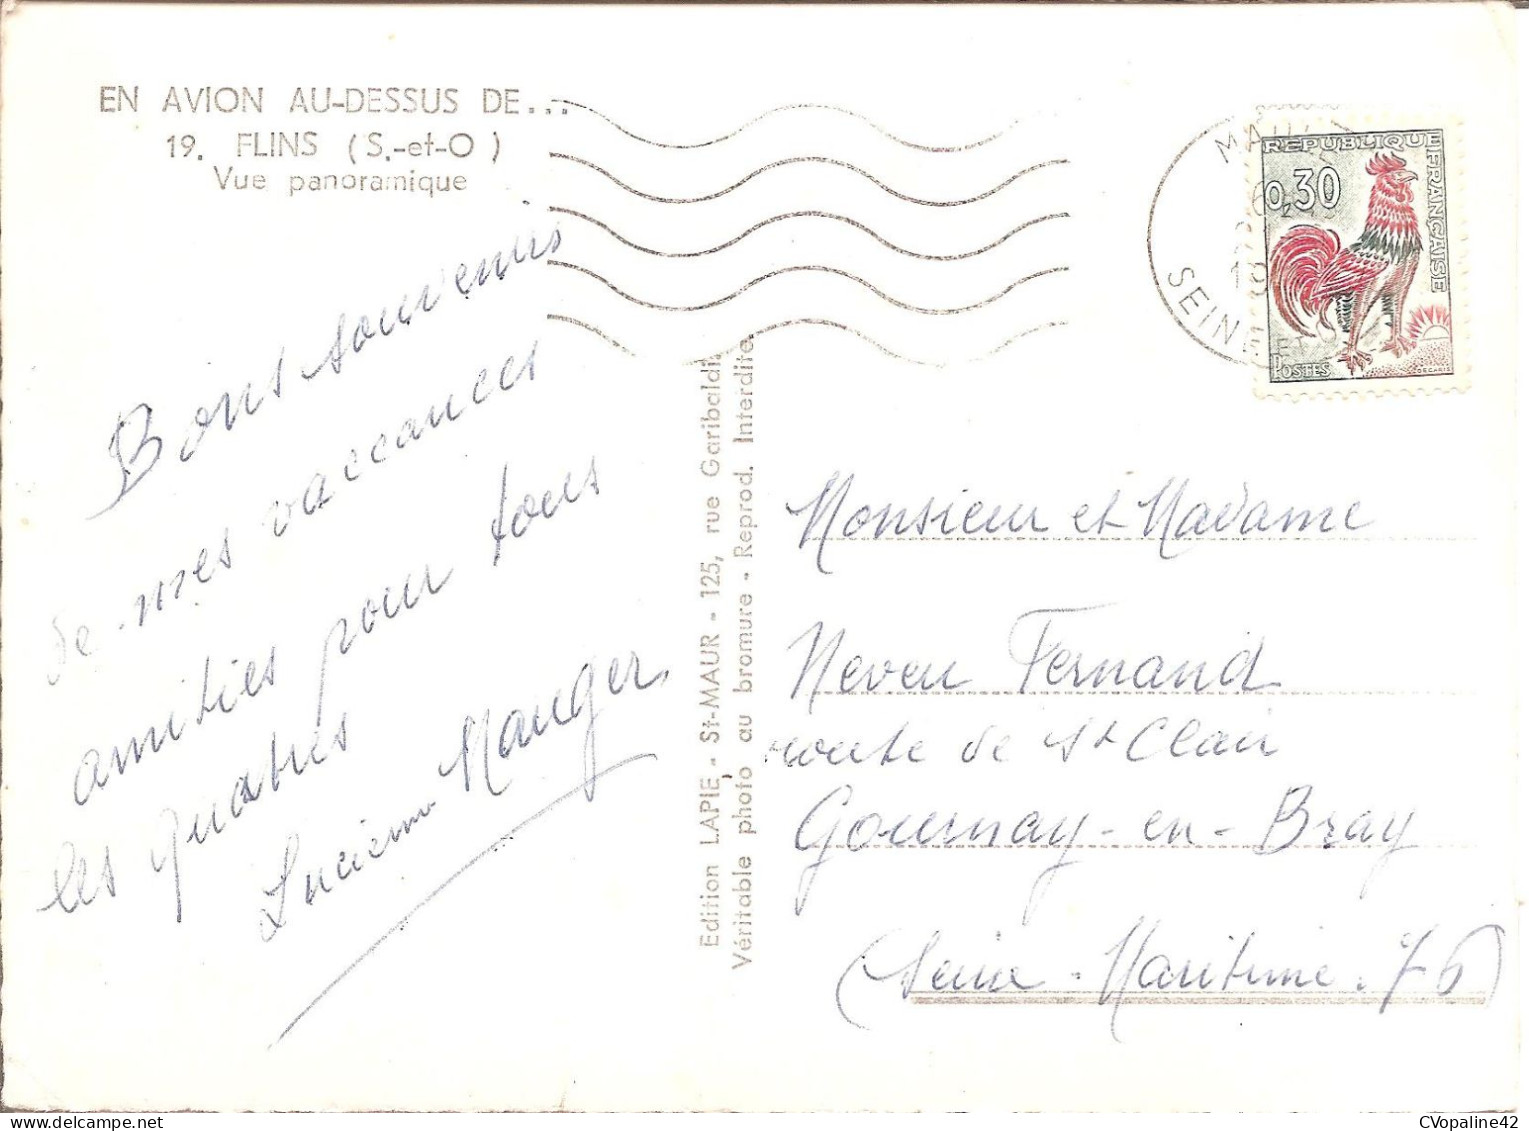 EN AVION AU-DESSUS DE...
19. FLINS (S.-et-O)
Vue panoramique
Bons souvenirs
de mes vaccances
amitiés pour tous
les quatres
Lucienne Mauger
Edition LAPIE - St-MAUR - 125, rue Garibaldi.
Véritable photo au bromure - Reprod. Interdite
SEINE ET
REPUBLIQUE FRANÇAISE
0,30
POSTES
DECARIS
Monsieur et Madame
Neveu Fernand
route de St Clair
Gournay-en-Bray
(Seine-Maritime. 76)
CVopaline42